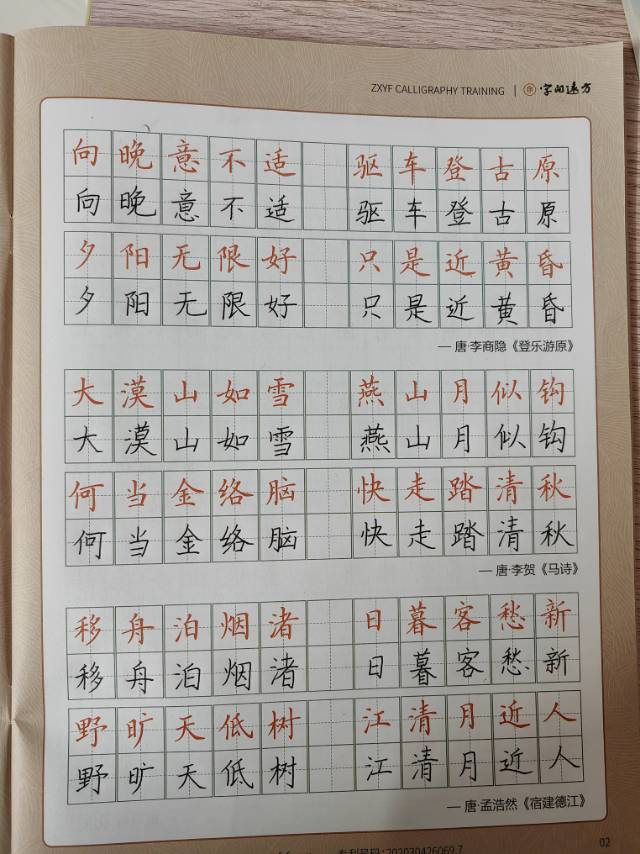 ZXYF CALLIGRAPHY TRAINING | 字的远方
向晚意不适 驱车登古原
向晚意不适 驱车登古原
夕阳无限好 只是近黄昏
夕阳无限好 只是近黄昏
— 唐·李商隐《登乐游原》
大漠山如雪 燕山月似钩
大漠山如雪 燕山月似钩
何当金络脑 快走踏清秋
何当金络脑 快走踏清秋
— 唐·李贺《马诗》
移舟泊烟渚 日暮客愁新
移舟泊烟渚 日暮客愁新
野旷天低树 江清月近人
野旷天低树 江清月近人
— 唐·孟浩然《宿建德江》
02
专利号码：202030426069.7